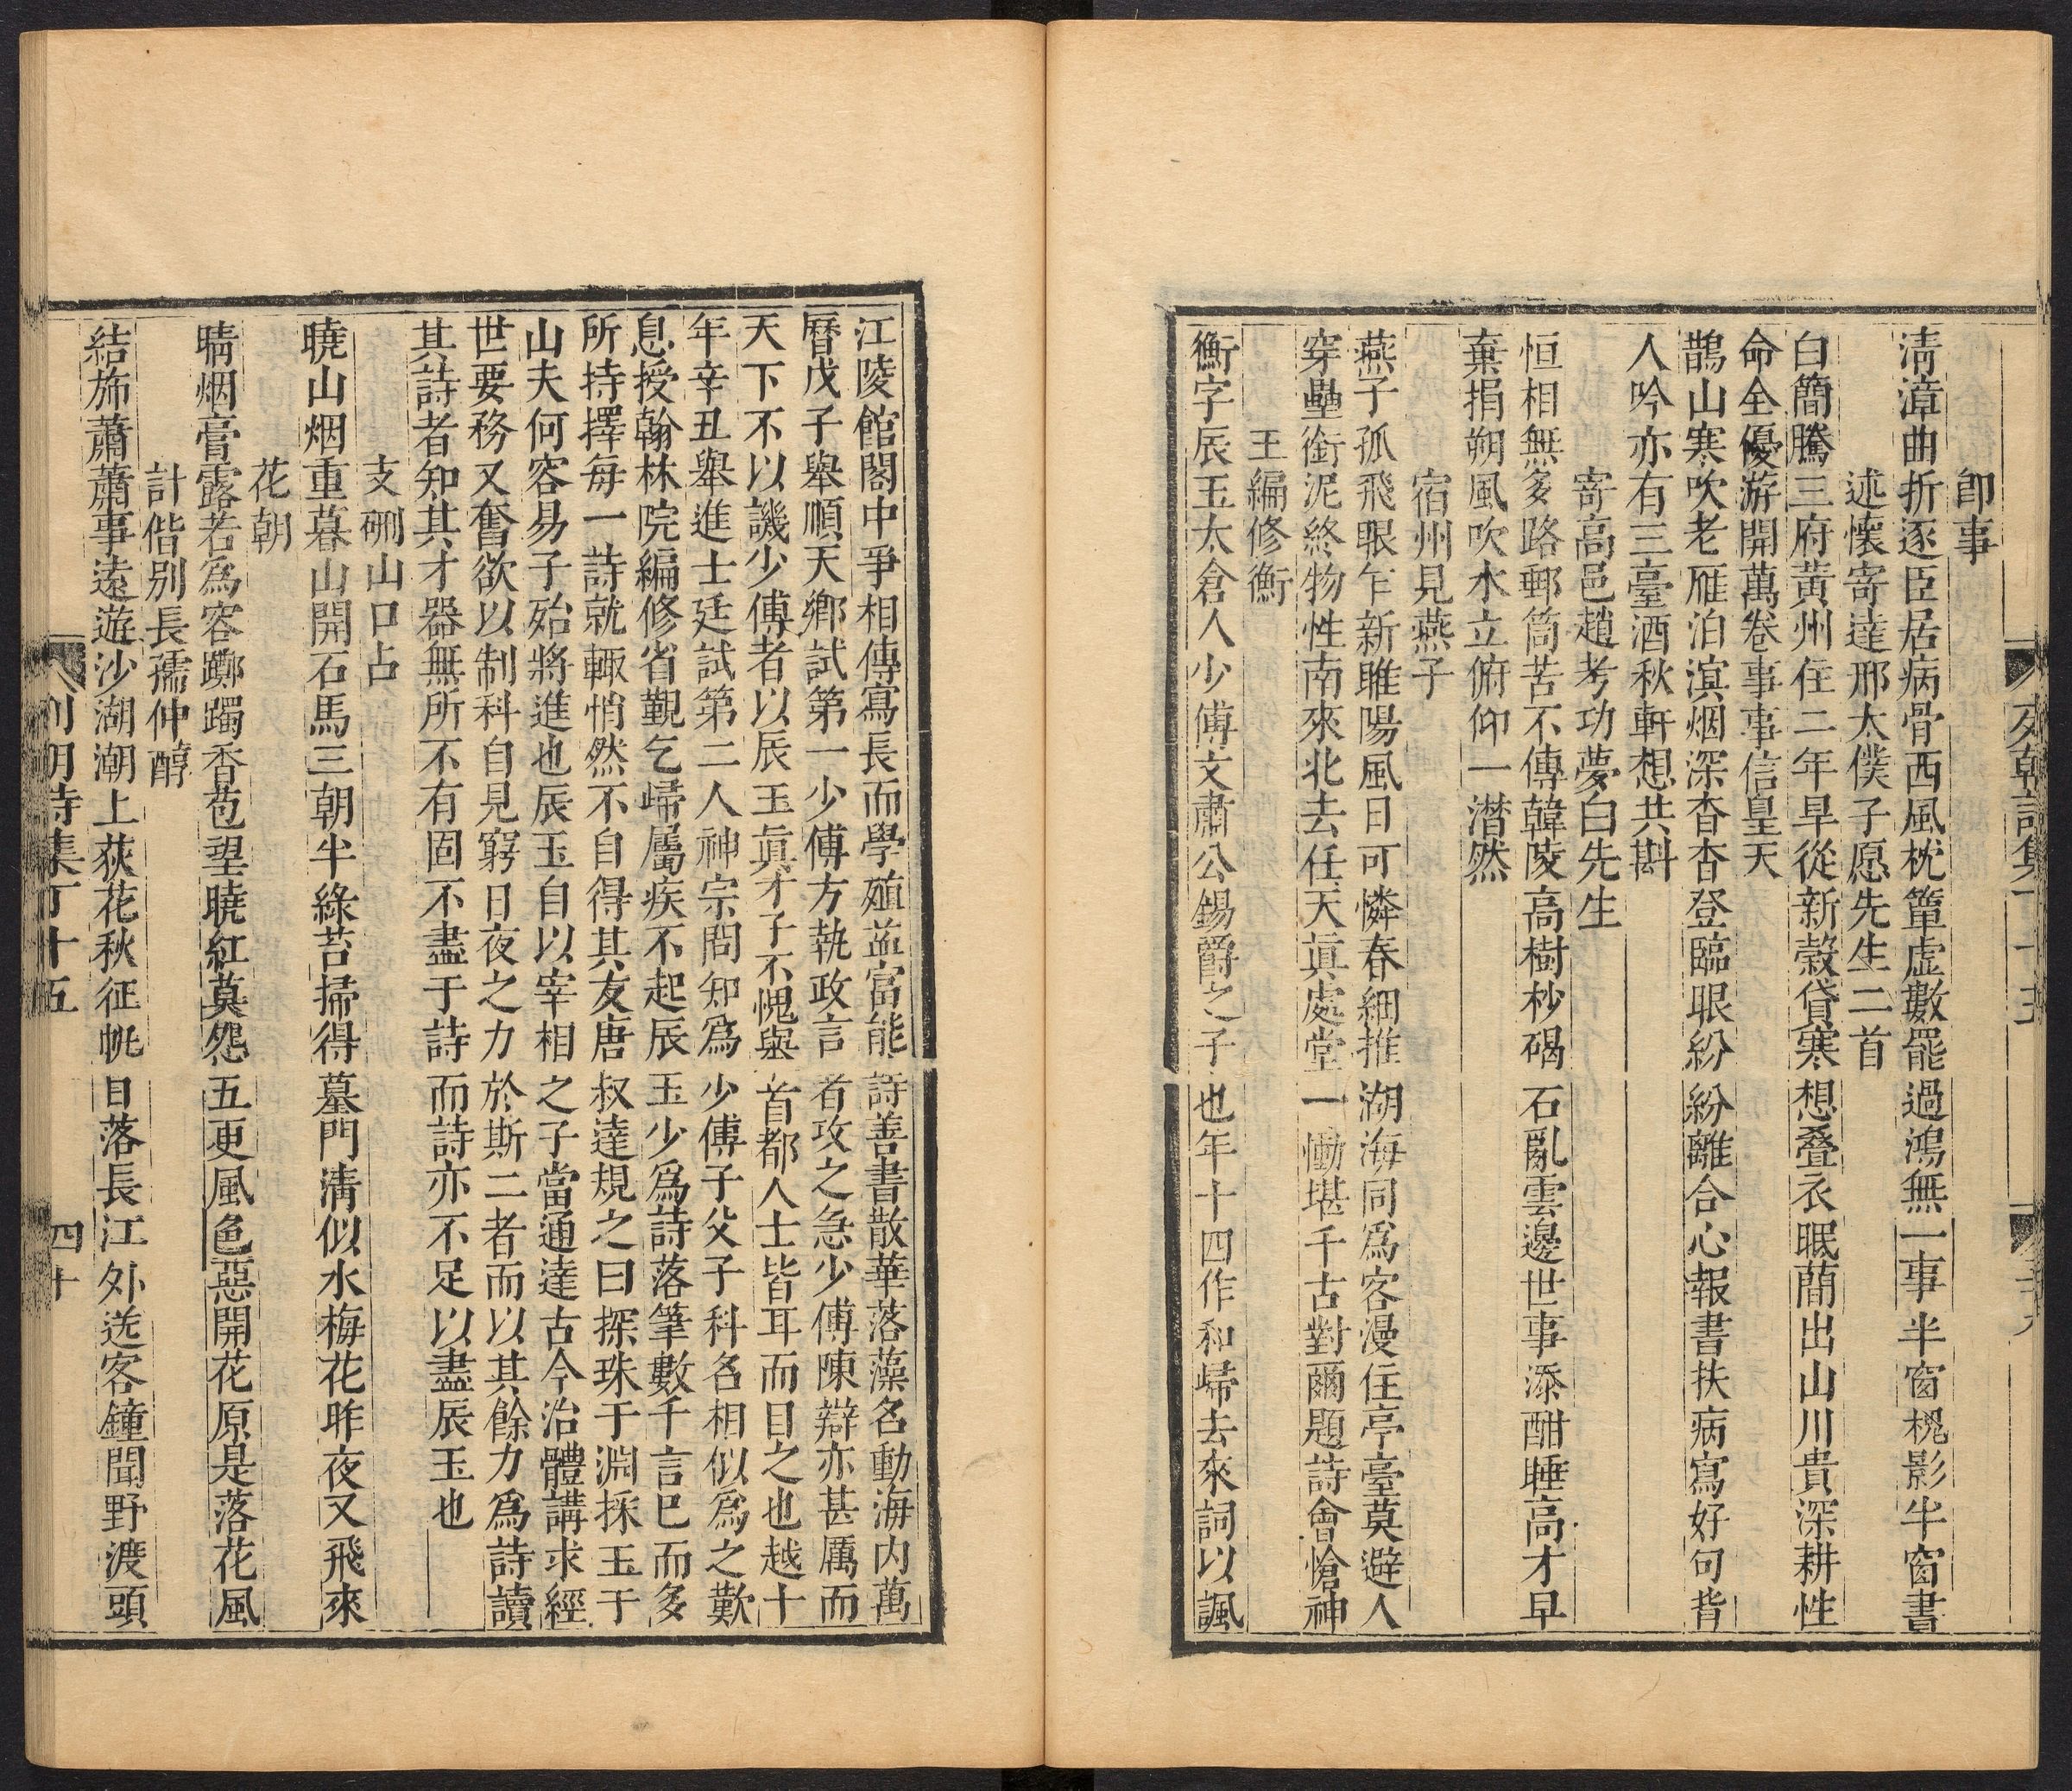 即事
清漳曲折逐臣居病骨西風枕簟虛數罷過鴻無一事半窗槐影半窗書
述懷寄達邢太僕子愿先生二首
白簡騰三府黃州住二年早從新穀貸寒想叠衣眠蘭出山川貴深耕性
命全優游開萬卷事事信皇天
鵲山寒吹老雁泊滨烟深杳杳登臨眼紛紛離合心報書扶病寫好句皆
人吟亦有三臺酒秋軒想共斟
寄高邑趙考功夢白先生
恒相無多路郵筒苦不傳韓陵高樹杪碣石亂雲邊世事添酣睡高才早
棄捐朔風吹水立俯仰一潸然
宿州見燕子
燕子孤飛眼乍新睢陽風日可憐春細推湖海同爲客漫住亭臺莫避人
穿壘銜泥終物性南來北去任天眞處堂一慟堪千古對爾題詩會愴神
王編修衡
衡字辰玉太倉人少傅文肅公錫爵之子也年十四作和歸去來詞以諷
江陵館閣中爭相傳寫長而學殖益富能詩善書散華落藻名動海內萬
曆戊子舉順天鄉試第一少傅方執政言者攻之急少傅陳辯亦甚厲而
天下不以譏少傅者以辰玉眞才子不愧與首都人士皆耳而目之也越十
年辛丑舉進士廷試第二人神宗問知爲少傅子父子科名相似爲之歎
息授翰林院編修省覲乞歸屬疾不起辰玉少爲詩落筆數千言已而多
所持擇每一詩就輒悄然不自得其友唐叔達規之曰探珠于淵採玉于
山夫何容易子殆將進也辰玉自以宰相之子當通達古今治體講求經
世要務又奮欲以制科自見窮日夜之力於斯二者而以其餘力爲詩讀
其詩者知其才器無所不有固不盡于詩而詩亦不足以盡辰玉也
支硎山口占
曉山烟重暮山開石馬三朝半綠苔掃得墓門清似水梅花昨夜又飛來
花朝
晴烟膏露若爲容躑躅香苞望曉紅莫怨五更風色惡開花原是落花風
計偕別長孺仲醇
結旆蕭蕭事遠遊沙湖潮上荻花秋征帆目落長江外送客鐘聞野渡頭
列朝詩集丁十五
四十